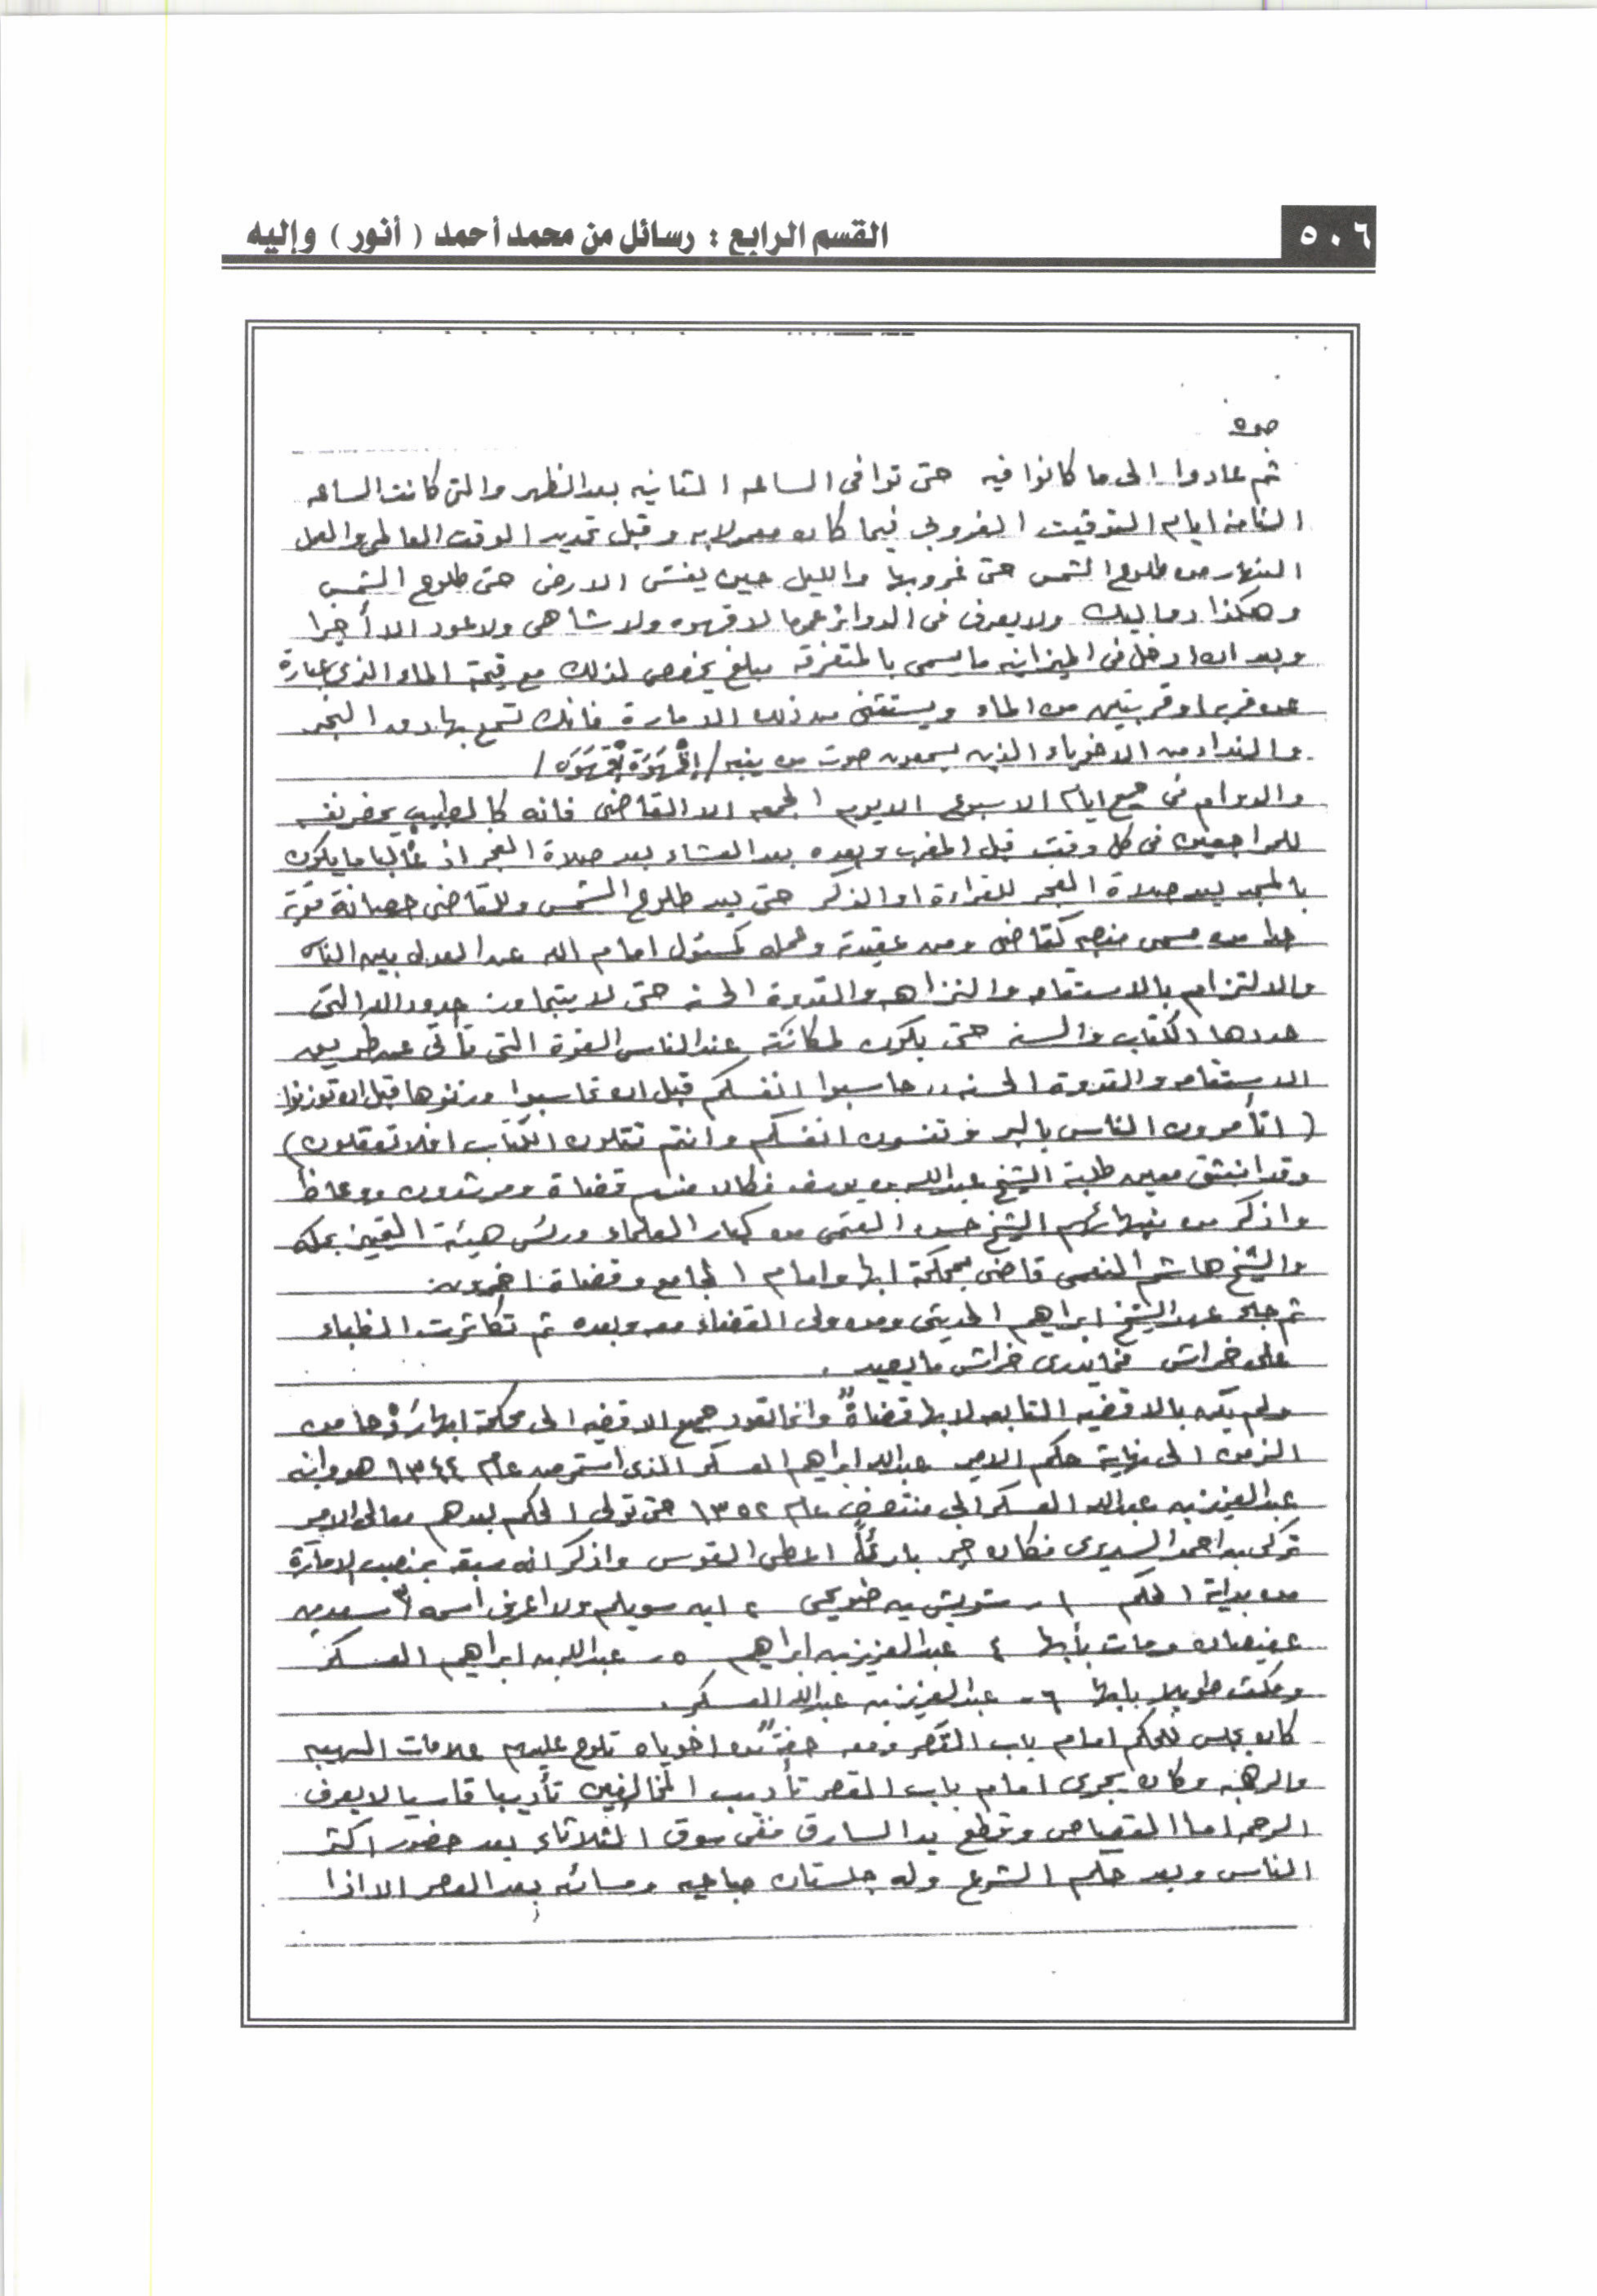 ٥٠٦
القسم الرابع : رسائل من محمد أحمد ( أنور ) وإليه
ص٥
ثم عادوا الى ما كانوا فيه حتى توافى الساعه الثانيه بعد الظهر والتى كانت الساعه
الثامنه ايام التوقيت الغروبى فيما كان معمولا به وقبل تحديد الوقت العالمى والعمل
النهار من طلوع الشمس حتى غروبها والليل حين يغشى الارض حتى طلوع الشمس
وهكذا دواليك ولا يعرف فى الدوائر عموما لا قهوه ولا شاهى ولا عود الا أخيرا
وبعد ان ادخل فى الميزانيه ما يسمى بالمتفرقه مبلغ يخصص لذلك مع قيمة الماء الذى عبارة
عن قربه او قربتين من الماء ويستثنى من ذلك الامارة فانك تسمع بهاون النجر
والنداء من الاخوياء الذين يسمعون صوت من ينبه / إقْهَوَهْ إقْهَوَه /
والدوام فى جميع ايام الاسبوع الا يوم الجمعه الا القاضى فانه كالطبيب يحضر نفسه
للمراجعين فى كل وقت قبل المغرب وبعده بعد العشاء بعد صلاة الفجر اذ غالبا ما يكون
بالمسجد بعد صلاة الفجر للقراءة او الذكر حتى بعد طلوع الشمس وللقاضى حصانة قويه
جدا من مسمى منصبه كقاضى ومن عقيدته وعمله كمسئول امام الله عن العدل بين الناس
والالتزام بالاستقامه والنزاهه والقدوة الحسنه حتى لا يتجاوز حدود الله التى
حددها الكتاب والسنه حتى يكون لمكانته عند الناس القوة التى تأتى عن طريق
الاستقامه والقدوة الحسنه ،، حاسبوا انفسكم قبل ان تحاسبوا وزنوها قبل ان توزنوا
( اتأمرون الناس بالبر وتنسون انفسكم وانتم تتلون الكتاب افلا تعقلون )
وقد انبثق معين طلبة الشيخ عبدالله بن يوسف فكان منهم قضاة ومرشدون ووعاظ
واذكر من نبهائهم الشيخ حسن العتمى من كبار العلماء ورئس هيئة التمييز بمكه
والشيخ هاشم النعمى قاضى بمحكمة ابها وامام الجامع وقضاة اخرون
ثم جاء عهد الشيخ ابراهيم الحديثى ومن ولى القضاء معه وبعده ثم تكاثرت الظباء
على خراش فما يدرى خراش ما يصيد .
ولم يكن بالاقضيه التابعه لابها قضاةٌ وانما تعود جميع الاقضيه الى محكمة ابها رَدْحا من
الزمن الى نهاية حكم الامير عبدالله ابراهيم العسكر الذى استمر من عام ١٣٤٤ هو وابنه
عبدالعزيز بن عبدالله العسكر الى منتصف عام ١٣٥٢ حتى تولى الحكم بعدهم معالى الامير
تركى بن احمد السديرى فكان خير بارئها اعطى القوس واذكر انه سبقه بمنصب الامارة
من بداية الحكم ١- شويش بن ضويحى ٢ ابن سويلم ولا اعرف اسمه ٣ سعد بن
عفيصان ومات بأبها ٤ عبدالعزيز بن ابراهيم ٥- عبدالله بن ابراهيم العسكر
ومكث طويلا بابها ٦- عبدالعزيز بن عبدالله العسكر .
كان يجلس للحكم امام باب القصر ومعه من اخوياه تلوح عليهم علامات الهيبه
والرهبه وكان يجرى امام باب القصر تأديب المخالفين تأديبا قاسيا لا يعرف
الرحمه اما القصاص وقطع يد السارق ففى سوق الثلاثاء بعد حضور اكثر
الناس وبعد حكم الشرع وله جلستان صباحيه ومسائه بعد العصر الا اذا